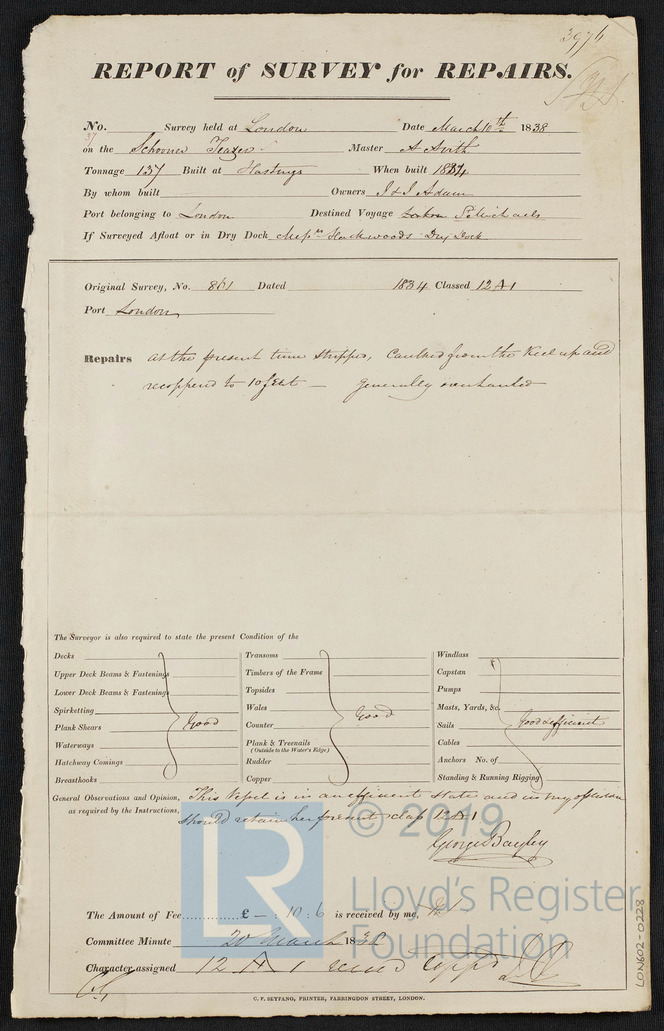 3974
REPORT of SURVEY for REPAIRS.
No. Survey held at London Date March 10th 1838
37
on the Schooner Teazer Master A Smith
Tonnage 137 Built at Hastings When built 1834
By whom built Owners I & I Adam
Port belonging to London Destined Voyage St Michaels
If Surveyed Afloat or in Dry Dock Dry Dock
Original Survey, No. 861 Dated 1834 Classed 12 A 1
Port London
Repairs at the present time stripped, Caulked from the Keel up and
recopperd to 10 feet — generally overhauled
The Surveyor is also required to state the present Condition of the
Decks
Upper Deck Beams & Fastenings
Lower Deck Beams & Fastenings
Spirketting
Plank Shears
Waterways
Hatchway Comings
Breasthooks
Good
Transoms
Timbers of the Frame
Topsides
Wales
Counter
Plank & Treenails
(Outside to the Water's Edge)
Rudder
Copper
Good
Windlass
Capstan
Pumps
Masts, Yards, &c.
Sails
Cables
Anchors No. of
Standing & Running Rigging
Good & efficient
General Observations and Opinion, This Vessel is in an efficient state and in my opinion
as required by the Instructions, should retain her present class 12 A 1
George Bayley
The Amount of Fee £ — : 10 : 6 is received by me,
Committee Minute 20 March 1838
Character assigned 12 A 1 copp'd
C. F. SEYFANG, PRINTER, FARRINGDON STREET, LONDON.
LON602-0228
LR
© 2019
Lloyd's Register
Foundation